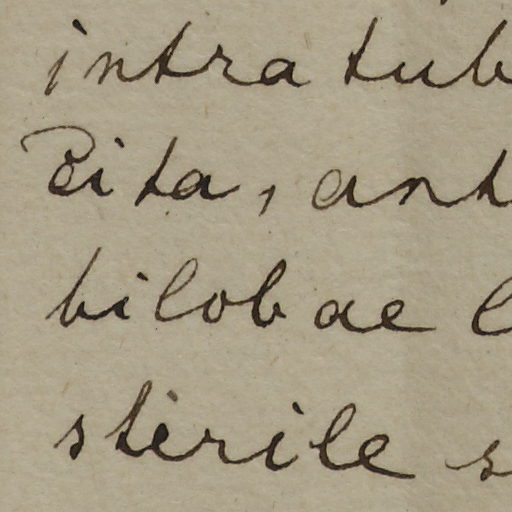 intra tub
cita, ant
bilobae l
sterile s